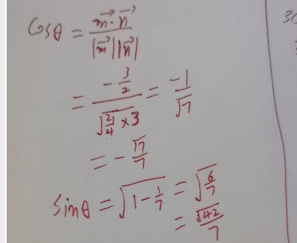 cosθ = \frac{\vec{m}·\vec{n}}{|\vec{m}||\vec{n}|}
= \frac{-\frac{3}{2}}{\sqrt{\frac{21}{4}}×3} = \frac{-1}{\sqrt{7}}
= -\frac{\sqrt{7}}{7}
sinθ = \sqrt{1-\frac{1}{7}} = \sqrt{\frac{6}{7}}
= \frac{\sqrt{42}}{7}